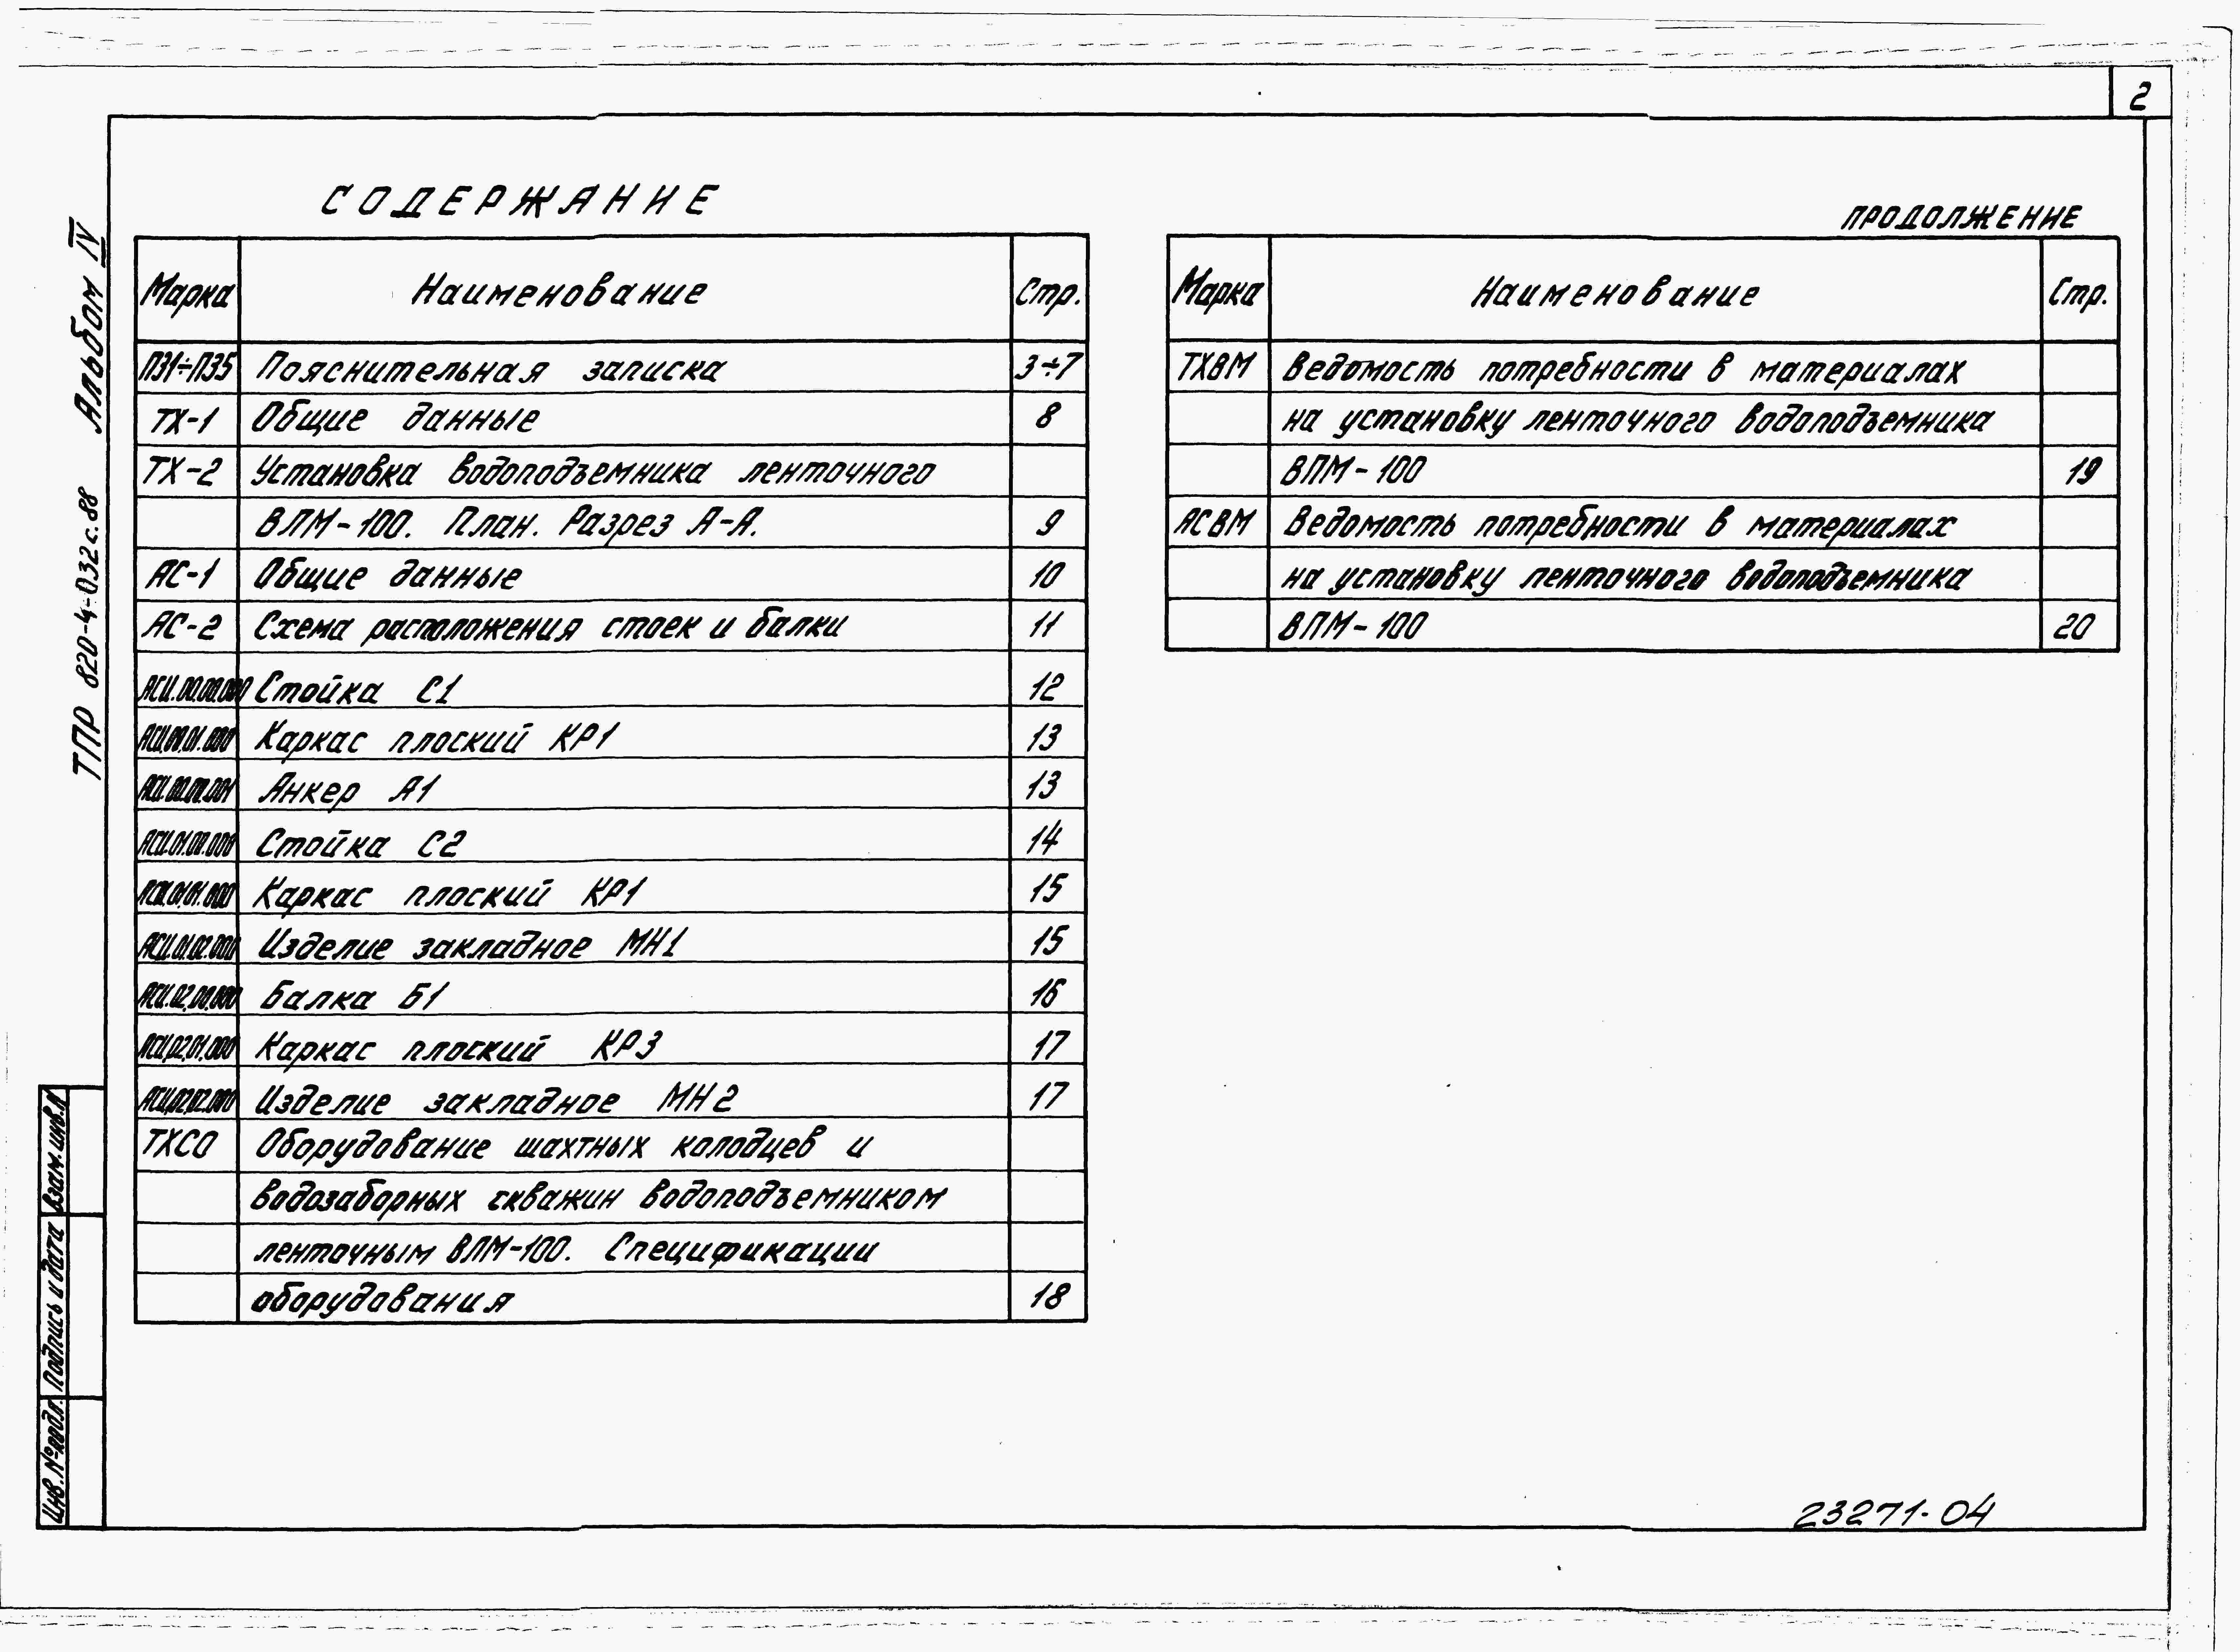 2
СОДЕРЖАНИЕ
Марка Наименование Стр.
ПЗ1÷ПЗ5 Пояснительная записка 3÷7
ТХ-1 Общие данные 8
ТХ-2 Установка водоподъемника ленточного
ВЛМ-100. План. Разрез А-А. 9
АС-1 Общие данные 10
АС-2 Схема расположения стоек и балки 11
АСИ.00.00.000 Стойка С1 12
АСИ.00.01.000 Каркас плоский КР1 13
АСИ.00.00.001 Анкер А1 13
АСИ.01.00.000 Стойка С2 14
АСИ.01.01.000 Каркас плоский КР1 15
АСИ.01.02.000 Изделие закладное МН1 15
АСИ.02.00.000 Балка Б1 16
АСИ.02.01.000 Каркас плоский КР3 17
АСИ.02.02.000 Изделие закладное МН2 17
ТХСО Оборудование шахтных колодцев и
водозаборных скважин водоподъемником
ленточным ВЛМ-100. Спецификации
оборудования 18
ПРОДОЛЖЕНИЕ
Марка Наименование Стр.
ТХВМ Ведомость потребности в материалах
на установку ленточного водоподъемника
ВПМ-100 19
АСВМ Ведомость потребности в материалах
на установку ленточного водоподъемника
ВПМ-100 20
ТПР 820-4-032с.88 Альбом IV
Инв.№подл. Подпись и дата Взам.инв.№
23271-04